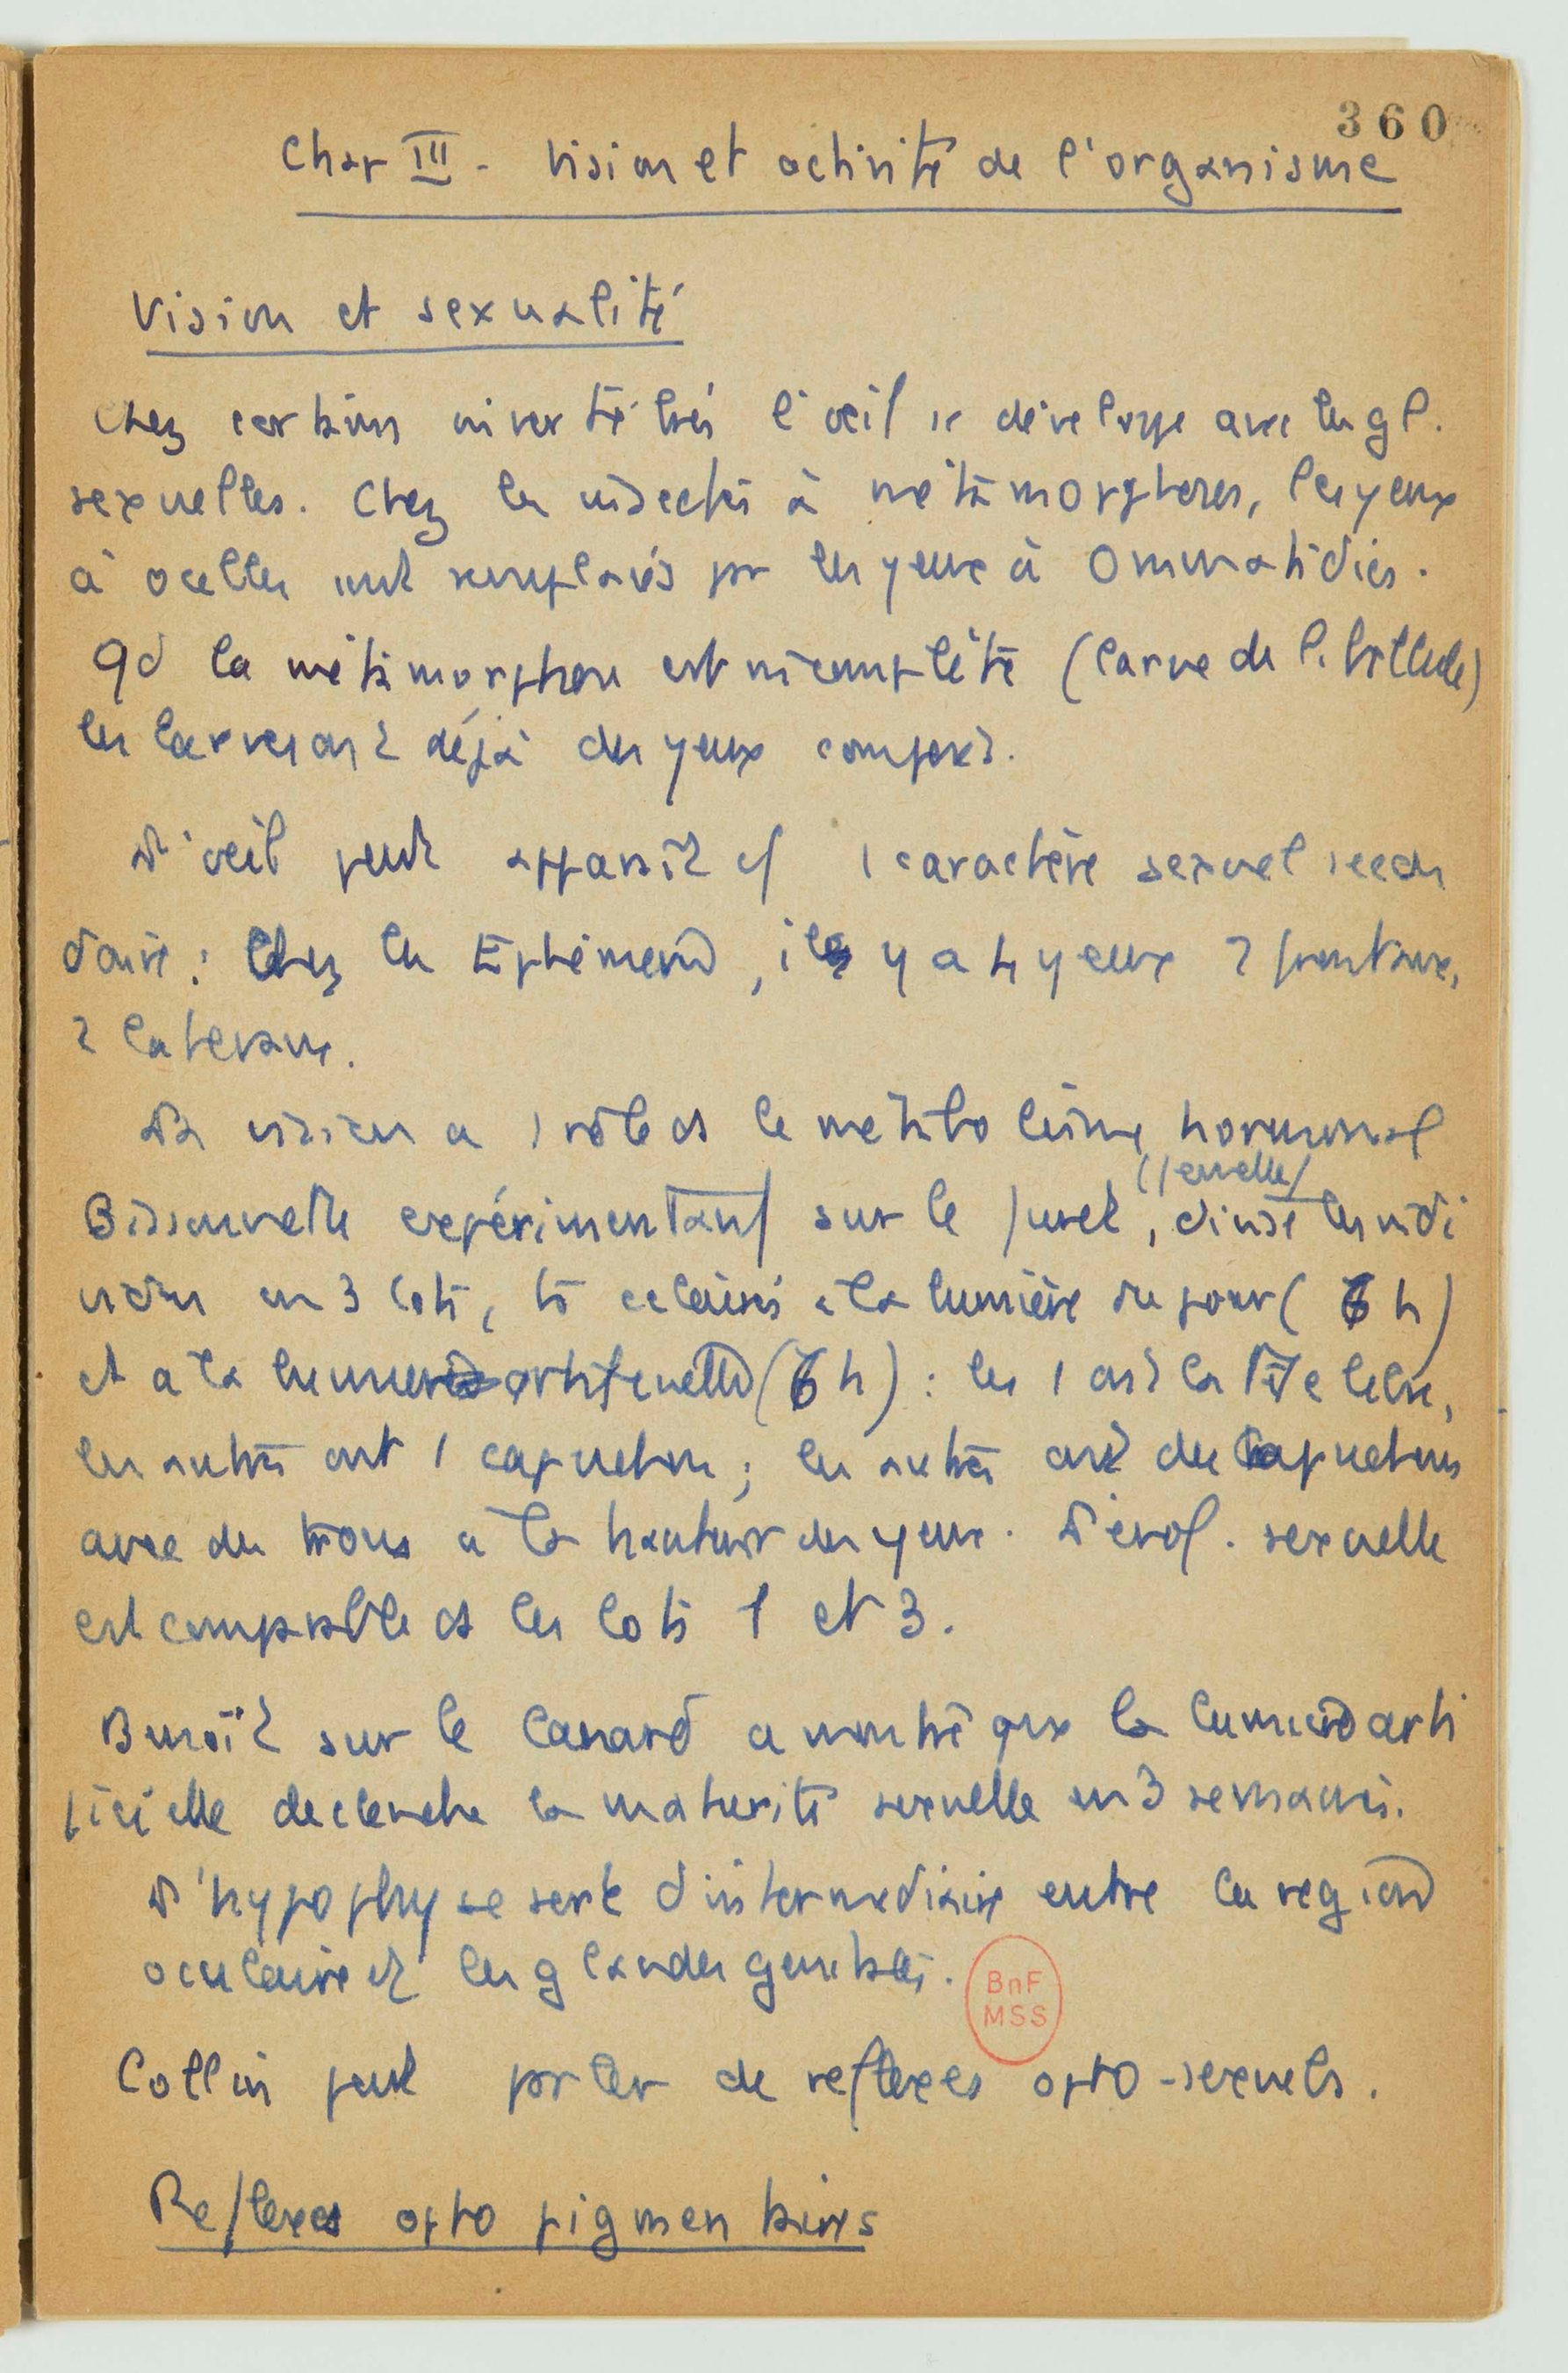 360
Chap III - Vision et activité de l'organisme
Vision et sexualité
Chez certains invertébrés l'œil se développe avec les gl.
sexuelles. Chez les insectes à métamorphoses, les yeux
à ocelles sont remplacés par les yeux à Ommatidies.
Qd la métamorphose est incomplète (larve de libellule)
les larves ont déjà des yeux composés.
L'œil peut apparaît c/ 1 caractère sexuel secon
daire : Chez les Ephémères, il y a 4 yeux 2 frontaux,
2 latéraux.
La vision a 1 rôle ds le métabolisme hormonal
(femelle)
Bissonnette expérimentant sur le furet, divise les indi
vidus en 3 lots, ts éclairés à la lumière du jour (6 h)
et à la lumière artificielle (6 h) : les 1 ont la tête libre,
les autres ont 1 capuchon ; les autres ont des capuchons
avec des trous à la hauteur des yeux. L'évol. sexuelle
est comparable ds les lots 1 et 3.
Benoît sur le Canard a montré que la lumière arti
ficielle déclenche la maturité sexuelle en 3 semaines.
L'hypophyse sert d'intermédiaire entre la région
oculaire et les glandes génitales.
BnF
MSS
Collin peut parler de reflexes opto-sexuels.
Reflexes opto pigmentaires